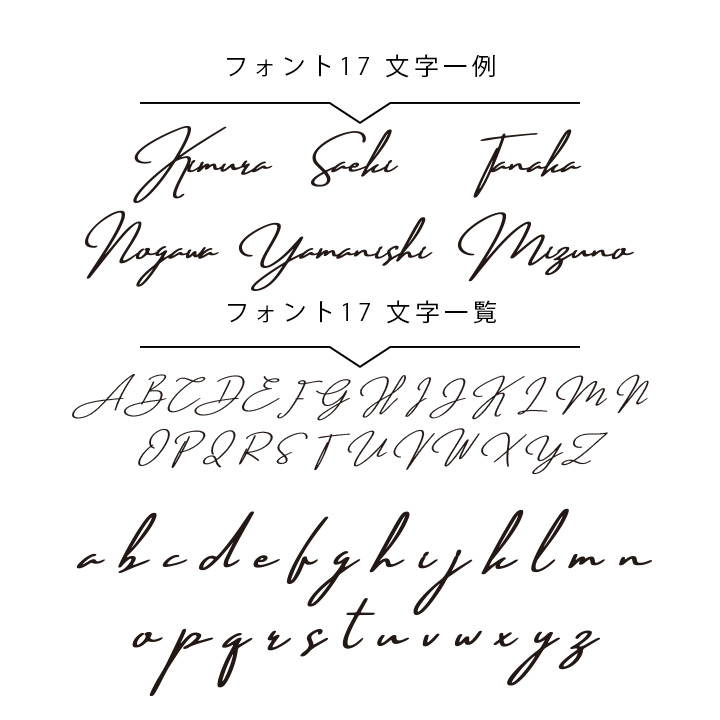 フォント17 文字一例
Kimura Saeki Tanaka
Nogawa Yamanishi Mizuno
フォント17 文字一覧
A B C D E F G H I J K L M N
O P Q R S T U V W X Y Z
a b c d e f g h i j k l m n
o p q r s t u v w x y z